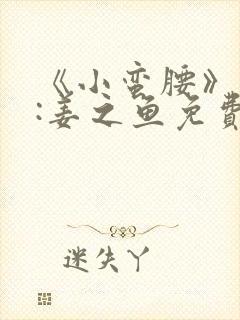 《小蛮腰》
:姜之鱼免費
迷失丫